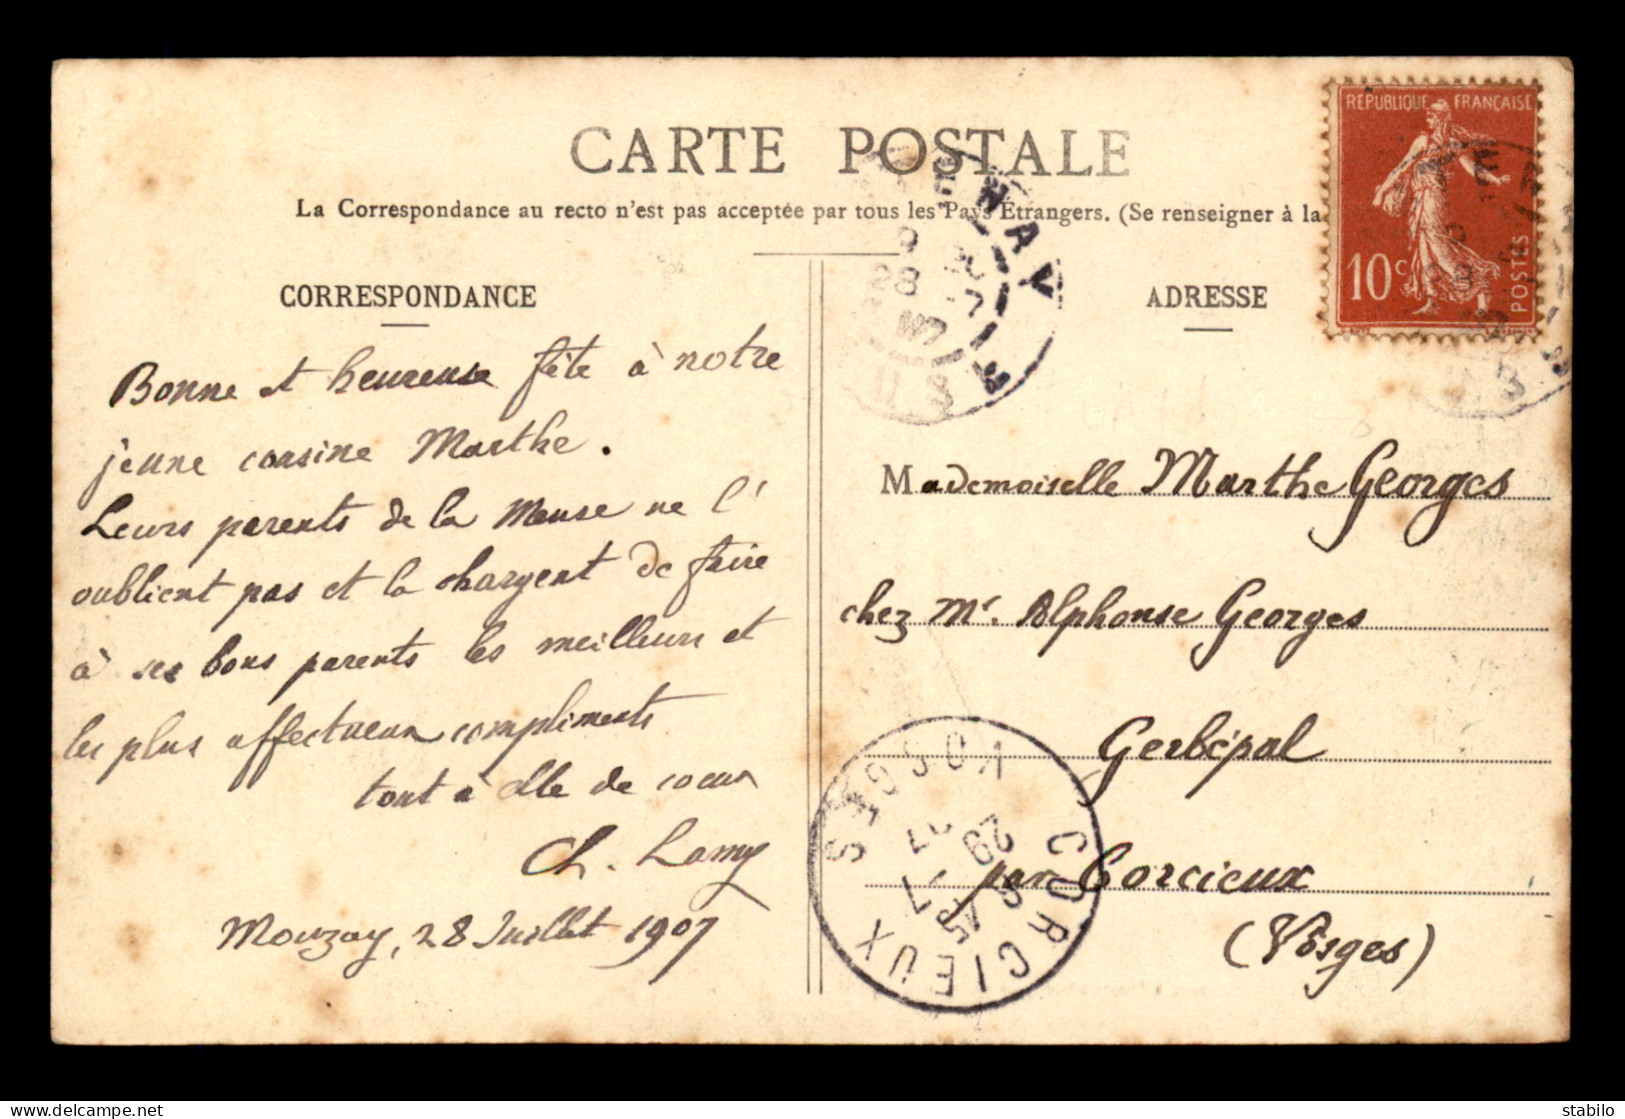 CARTE POSTALE
La Correspondance au recto n'est pas acceptée par tous les Pays Étrangers. (Se renseigner à la
CORRESPONDANCE
Bonne et heureuse fête à notre
jeune cousine Marthe.
Leurs parents de la Meuse ne l'
oublient pas et la chargent de faire
à ses bons parents les meilleurs et
les plus affectueux compliments
tout à elle de coeur
Ch. Lamy
Mouzay, 28 Juillet 1907
ADRESSE
Mademoiselle Marthe Georges
chez Mr. Alphonse Georges
Gerbépal
par Corcieux
(Vosges)
REPUBLIQUE FRANÇAISE
10c
POSTES
CORCIEUX
VOSGES
29
7
07
stabilo